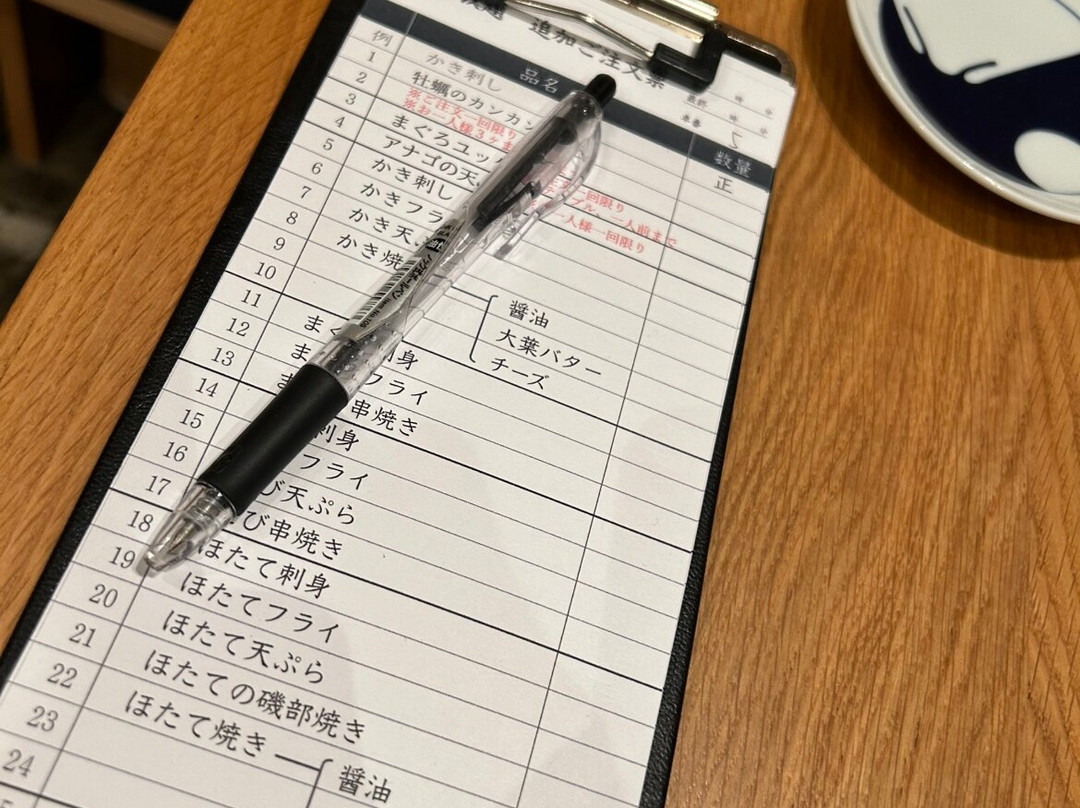 追加ご注文票
品名
数量
例 かき刺し 正
1 牡蠣のカンカン
※ご注文一回限り
※お一人様3ヶま
2 まぐろユッケ
一回限り
一人前まで
3 アナゴの天
一人様一回限り
4 かき刺し
5 かきフラ
6 かき天
7 かき焼
醤油
8 大葉バター
9 チーズ
10
11
12
13
14
15
16
17
18
19
20
21
22
23
24
刺身
フライ
串焼き
刺身
フライ
び天ぷら
び串焼き
ほたて刺身
ほたてフライ
ほたて天ぷら
ほたての磯部焼き
ほたて焼き
醤油